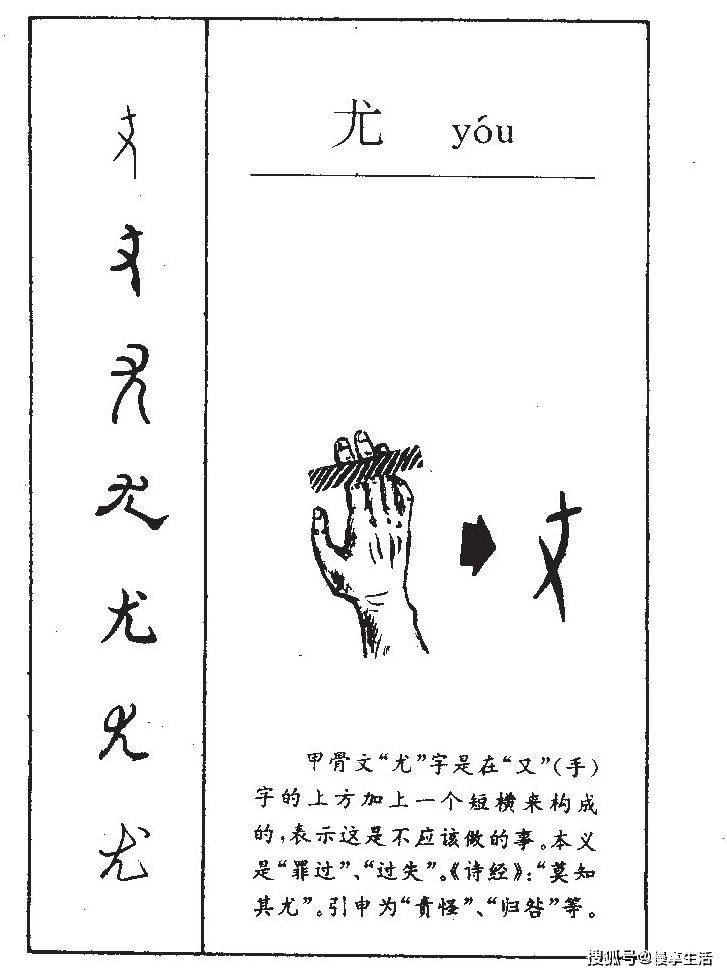 尤 yóu
甲骨文“尤”字是在“又”(手)
字的上方加上一个短横来构成
的,表示这是不应该做的事。本义
是“罪过”、“过失”。《诗经》:“莫知
其尤”。引申为“责怪”、“归咎”等。
尤
尤
尤
搜狐号@慢享生活